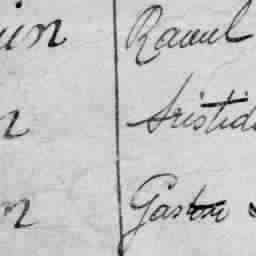 in Raoul
n Aristid
n Gaston